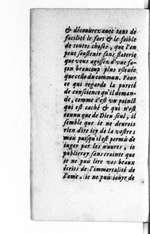 & découvrez avec tant de
facilité le fort & le foible
de toutes choses, que l'on
peut soustenir sans flaterie
que vous agissez d'une fa-
çon beaucoup plus élevée
que celle du commun. Pour
ce qui regarde la pureté
de conscience qu'il deman-
de, comme c'est un point
qui est caché & qui n'est
connu que de Dieu seul, il
semble que je ne devrois
rien dire icy de la vostre:
mais puisqu'il est permis de
juger par les œuvres, je
publieray sans crainte que
je ne puis lire vos beaux
écrits de l'immortalité de
l'ame, je ne puis songer de